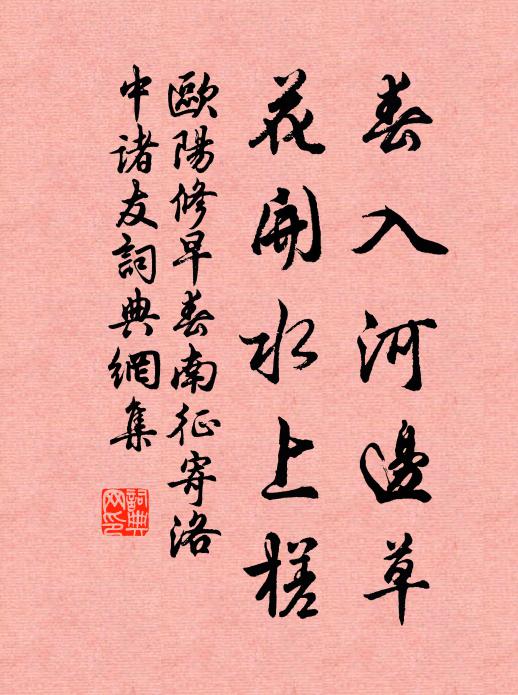 春入河邊草
花開水上槎
歐陽修早春南征寄洛
中諸友詞典網集
詞典
网印